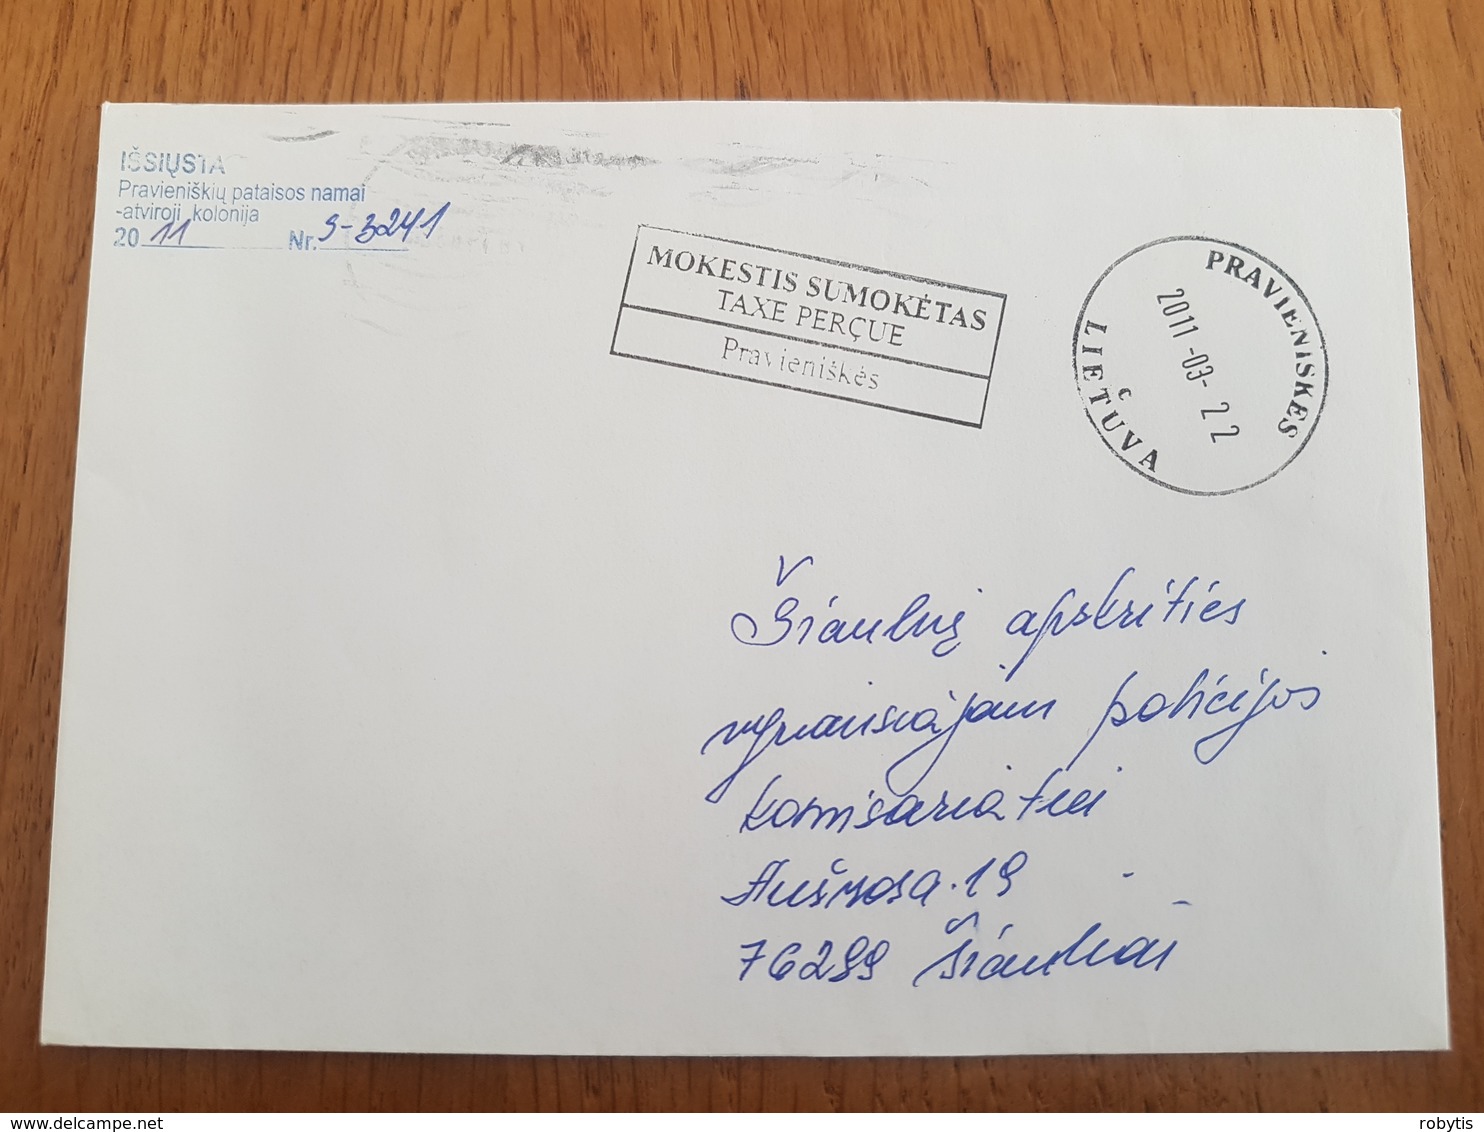 IŠSIŲSTA
Pravieniškių pataisos namai
-atviroji kolonija
20 11 Nr. S-3241
MOKESTIS SUMOKĖTAS
TAXE PERÇUE
Pravieniškės
PRAVIENIŠKĖS
2011-03-22
C
LIETUVA
Šiaulių apskrities
vyriausiajam policijos
komisariatui
Aušros a. 19
76299 Šiauliai
delcampe.net
robytis